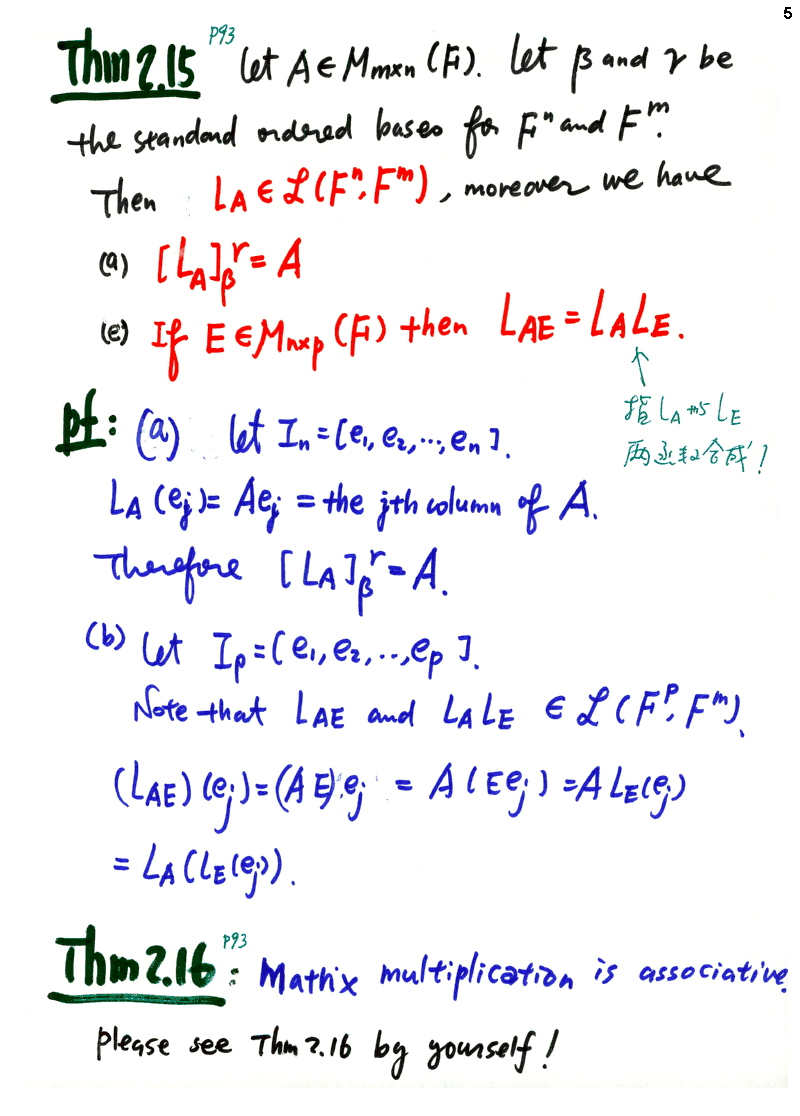 5
Thm 2.15 P93 Let A ∈ M_{m×n}(F). Let β and γ be
the standard ordered bases for F^n and F^m.
Then L_A ∈ 𝓛(F^n, F^m), moreover we have
(a) [L_A]_β^γ = A
(e) If E ∈ M_{n×p}(F) then L_{AE} = L_A L_E.
↑
指 L_A 与 L_E
两函数合成!
pf: (a) Let I_n = [e_1, e_2, ..., e_n].
L_A(e_j) = Ae_j = the jth column of A.
Therefore [L_A]_β^γ = A.
(b) Let I_p = [e_1, e_2, ..., e_p].
Note that L_{AE} and L_A L_E ∈ 𝓛(F^p, F^m).
(L_{AE})(e_j) = (AE)e_j = A(Ee_j) = A L_E(e_j)
= L_A(L_E(e_j)).
Thm 2.16 P93 : Matrix multiplication is associative.
please see Thm 2.16 by yourself!